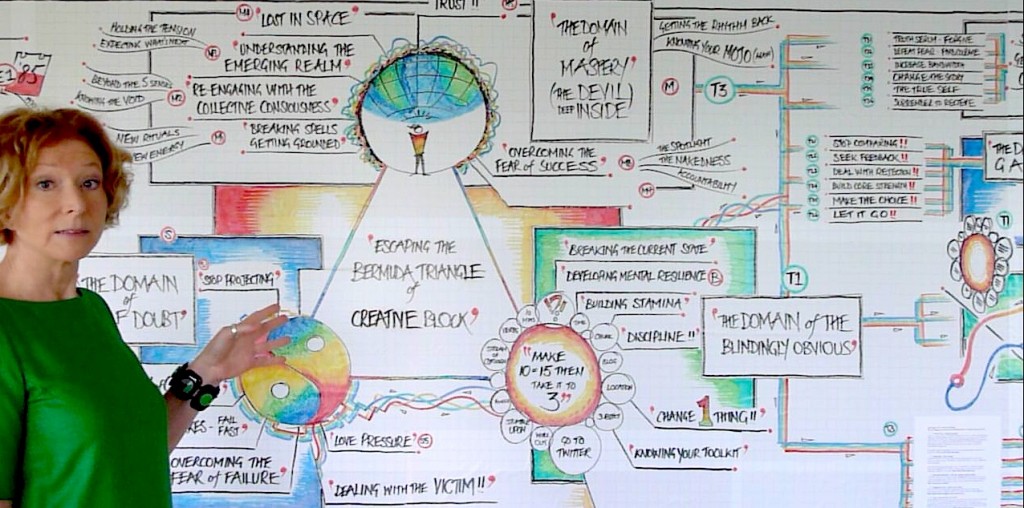 TRUST!!
85
HOLDING THE TENSION
EXPECTING WHAT'S NEXT
BEYOND THE 5 SENSES
AVOIDING THE VOID
NEW RITUALS
NEW ENERGY
"LOST IN SPACE"
"UNDERSTANDING THE
EMERGING REALM"
RE-ENGAGING WITH THE
COLLECTIVE CONSIOUSNESS"
"BREAKING SPELLS
GETTING GROUNDED"
"THE DOMAIN
of
MASTERY
(THE DEVIL)
DEEP INSIDE"
"OVERCOMING THE
FEAR OF SUCCESS"
GETTING THE RHYTHM BACK
KNOWING YOUR MOJO
M
T3
THE SPOTLIGHT
THE NAKEDNESS
ACCOUNTABILITY
TRUTH SERUM - FORGIVE
INCREASE BANDWIDTH
CHANGE THE STORY
THE TRUE SELF
SURRENDER TO RECEIVE
STOP COMPARING!!
SEEK FEEDBACK!!
DEAL WITH REJECTION!!
BUILD CORE STRENGTH!!
MAKE THE CHOICE!!
LET IT GO!!
T1
"ESCAPING THE
BERMUDA TRIANGLE
of
CREATIVE BLOCK"
S
THE DOMAIN
of
DOUBT"
"STOP PROJECTING"
FAIL
FAST"
OVERCOMING THE
FEAR of FAILURE"
"LOVE PRESSURE"
"DEALING WITH THE VICTIM!!"
"BREAKING THE CURRENT STATE
"DEVELOPING MENTAL RESILIENCE
B
"BUILDING STAMINA"
"DISCIPLINE!!"
"MAKE
10=15 THEN
TAKE IT TO
3"
BLOG
LOCATION
STUMBLE
UPON
GO TO
TWITTER
"CHANGE 1 THING!!"
"KNOWING YOUR TOOLKIT"
T1
"THE DOMAIN of THE
BLINDINGLY OBVIOUS"